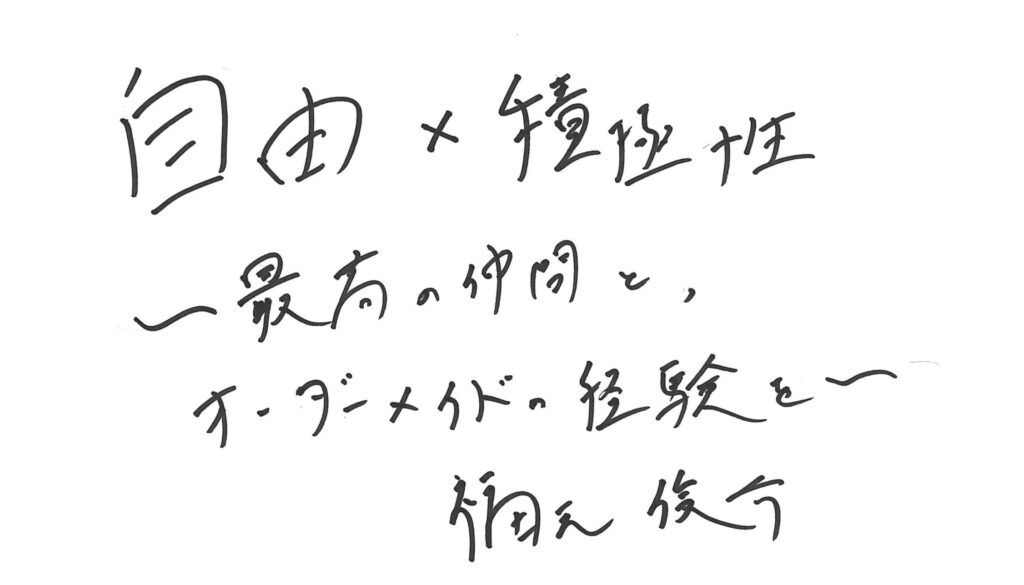 自由×積極性
～最高の仲間と,
オーダーメイドの経験を～
福元 俊介